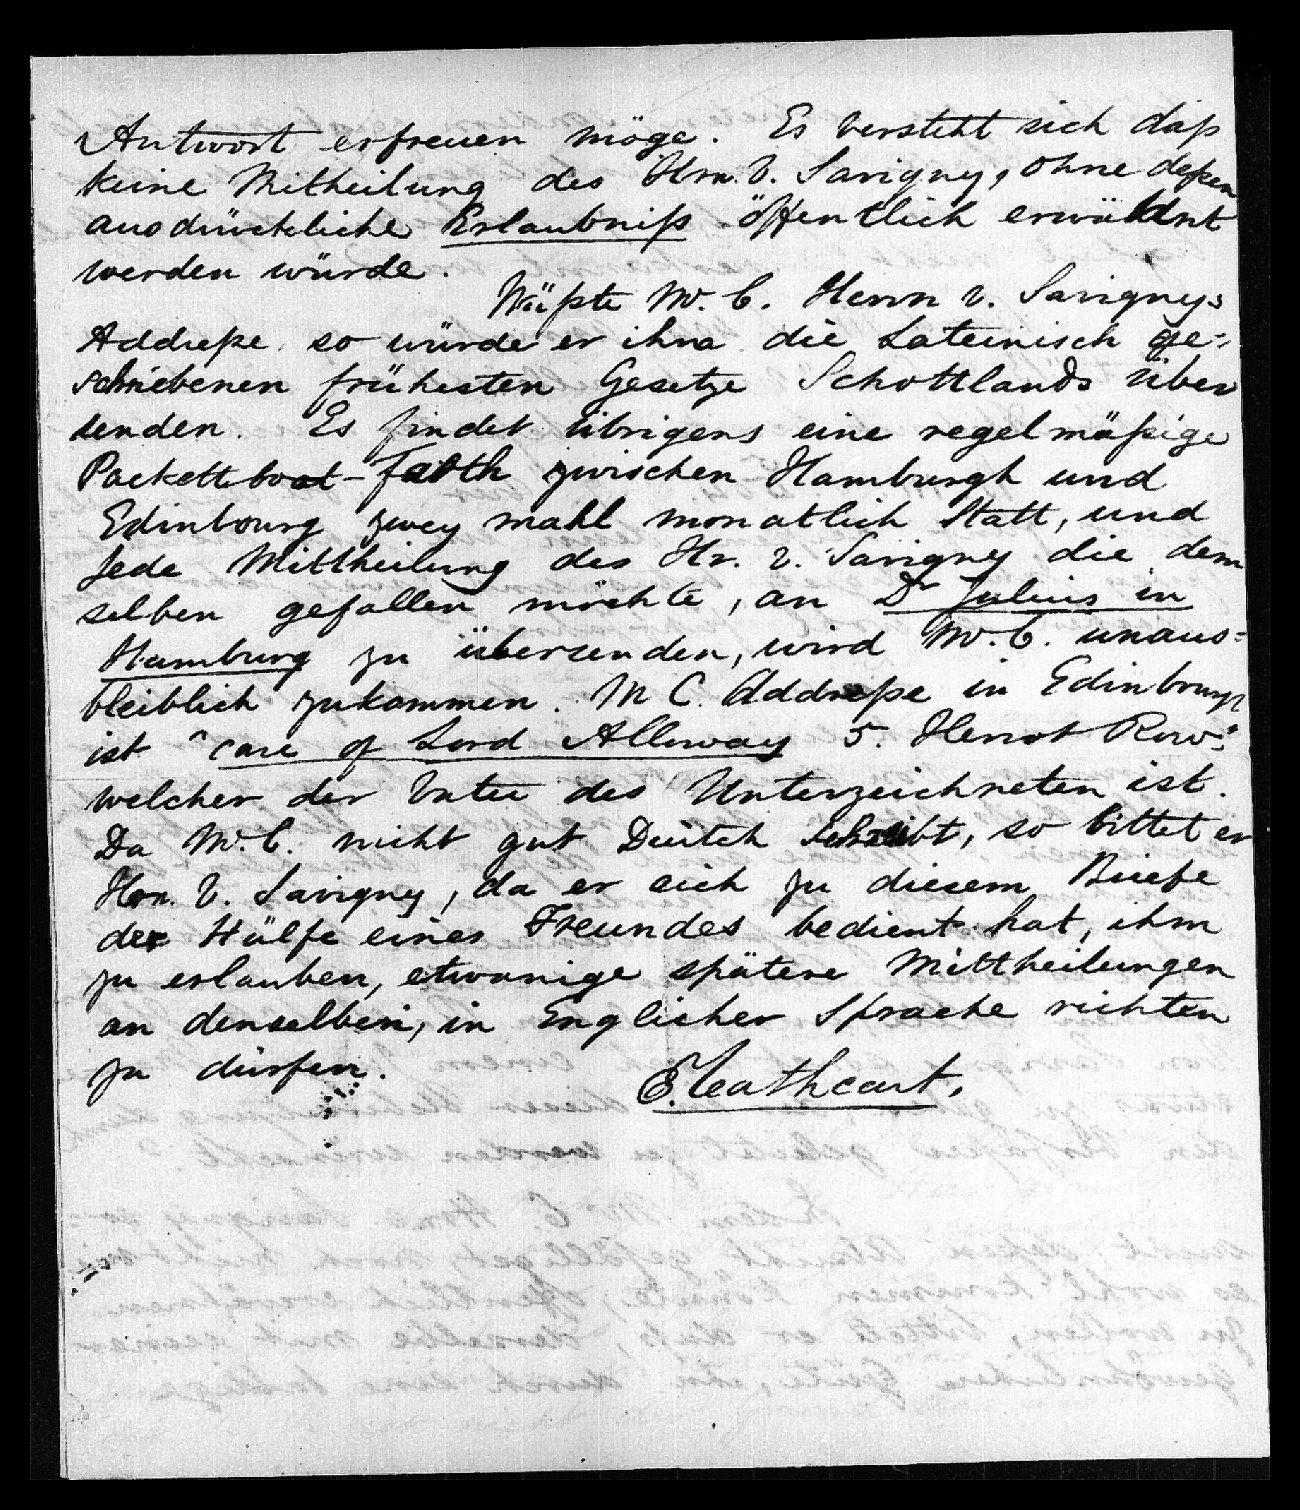 Antwort erfreuen möge. Es versteht sich daß
keine Mitheilung des Hrn. v. Savigny, ohne deßen
ausdrückliche Erlaubniß öffentlich erwähnt
werden würde.
Wüßte M. C. Herrn v. Savignys
Addreße so würde er ihm die Lateinisch ge=
schriebenen frühesten Gesetze Schottlands über
senden. Es findet übrigens eine regelmäßige
Packettboat-Farth zwischen Hamburgh und
Edinbourg zwey mahl monatlich Statt, und
Jede Mittheilung des Hr. v. Savigny die dem
selben gefallen möchte, an Dr Julius in
Hamburg zu übersenden, wird M. C. unaus=
bleiblich zukommen. M C. Addreße in Edinbrurgh
ist "care of Lord Alloway 5. Heriot Row"
welcher der Vater des Unterzeichneten ist.
Da M. C. nicht gut Deutch schreibt, so bittet er
Hrn. v. Savigny, da er sich zu diesem Briefe
der Hülfe eines Freundes bedient hat, ihm
zu erlauben, etwanige spätere Mittheilungen
an denselben, in Englicher Sprache richten
zu dürfen.
E. Cathcart.